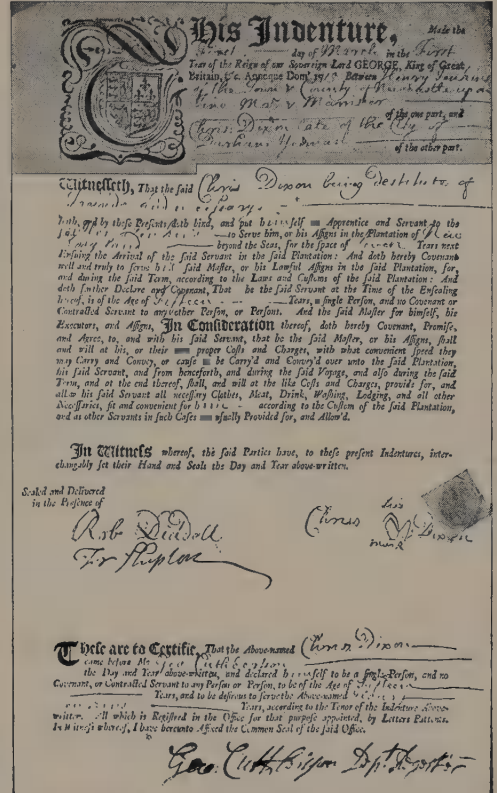 This Indenture, Made the
First day of March in the First
Year of the Reign of our Sovereign Lord GEORGE, King of Great
Britain, &c. Annoque Dom. Between Henry
of the Town & County of
of the one part, and
Dixon late of the City of
Durham of the other part.
Witnesseth, That the said Chris Dixon being destitute of
Doth, by these Presents doth bind, and put himself Apprentice and Servant to the
to Serve him, or his Assigns in the Plantation of
beyond the Seas, for the space of Years next
Ensuing the Arrival of the said Servant in the said Plantation: And doth hereby Covenant
well and truly to serve his said Master, or his Lawful Assigns in the said Plantation, for,
and during the said Term, according to the Laws and Customs of the said Plantation: And
doth further Declare and Covenant, That he the said Servant at the Time of the Ensealing
hereof, is of the Age of Years, a single Person, and no Covenant or
Contracted Servant to any other Person, or Persons. And the said Master for himself, his
Executors, and Assigns, In Consideration thereof, doth hereby Covenant, Promise,
and Agree, to, and with his said Servant, that he the said Master, or his Assigns, shall
and will at his, or their proper Costs and Charges, with what convenient speed they
may Carry and Convey, or cause to be Carry'd and Convey'd over unto the said Plantation,
his said Servant, and from henceforth, and during the said Voyage, and also during the said
Term, and at the end thereof, shall, and will at the like Costs and Charges, provide for, and
allow his said Servant all necessary Clothes, Meat, Drink, Washing, Lodging, and all other
Necessaries, fit and convenient for him according to the Custom of the said Plantation,
and as other Servants in such Cases usually Provided for, and Allow'd.
In Witness whereof, the said Parties have, to these present Indentures, inter-
changably set their Hand and Seals the Day and Year above-written.
Sealed and Delivered
in the Presence of
his
Chris Dixon
mark
These are to Certifie, That the Above-named Chris Dixon
came before Me Geo Cuthbertson
the Day and Year above-written, and declared himself to be a single Person, and no
Covenant, or Contracted Servant to any Person or Person, to be of the Age of
Years, and to be desirous to serve the Above-named
Years, according to the Tenor of the Indenture Above-
written. All which is Registred in the Office for that purpose appointed, by Letters Pattents.
In Witness whereof, I have hereunto Affixed the Common Seal of the said Office.
Geo: Cuthbertson